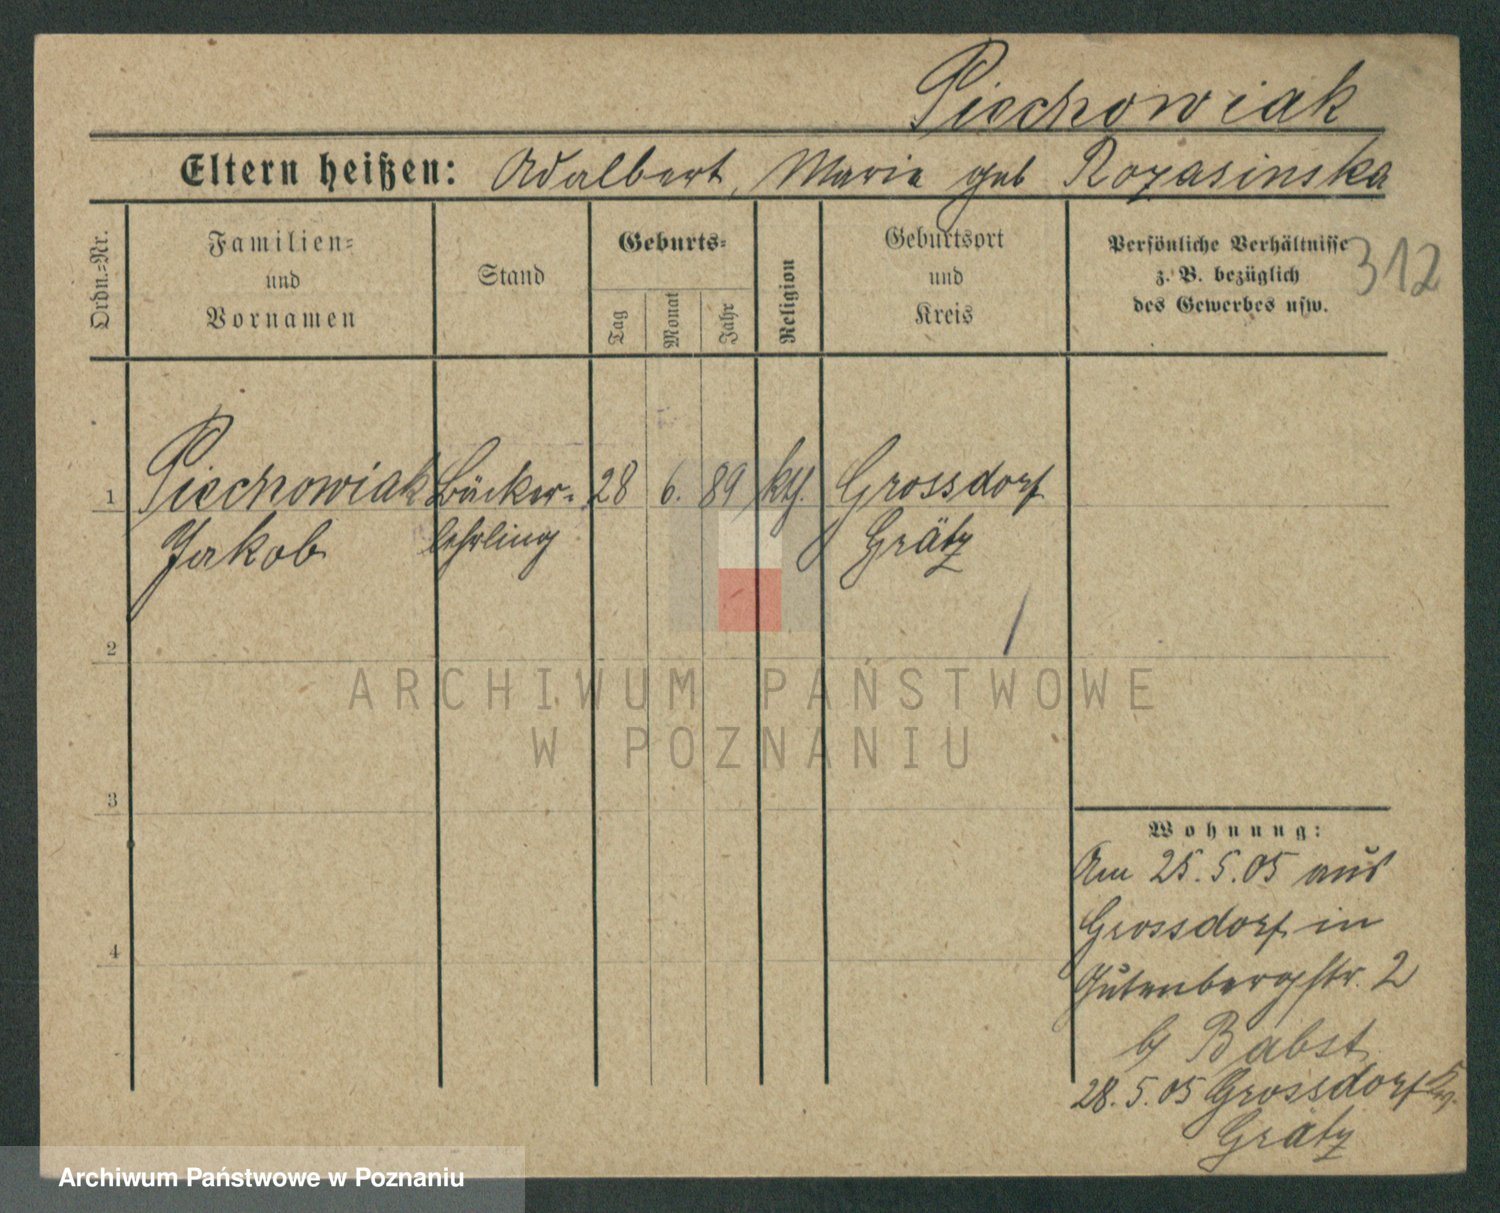 Piechowiak
Eltern heißen: Adalbert, Marie geb Rozasinska
Ordn.=Nr.
Familien=
und
Vornamen
Stand
Geburts=
Tag
Monat
Jahr
Religion
Geburtsort
und
Kreis
Persönliche Verhältnisse
z. B. bezüglich
des Gewerbes usw.
312
1 Piechowiak Bäcker= 28 6. 89 kth. Grossdorf
Jakob lehrling Grätz
2
3
4
ARCHIWUM PAŃSTWOWE
W POZNANIU
Wohnung:
Am 25.5.05 aus
Grossdorf in
Gutenbergstr. 2
b/ Babst
28.5.05 Grossdorf
Grätz
Archiwum Państwowe w Poznaniu